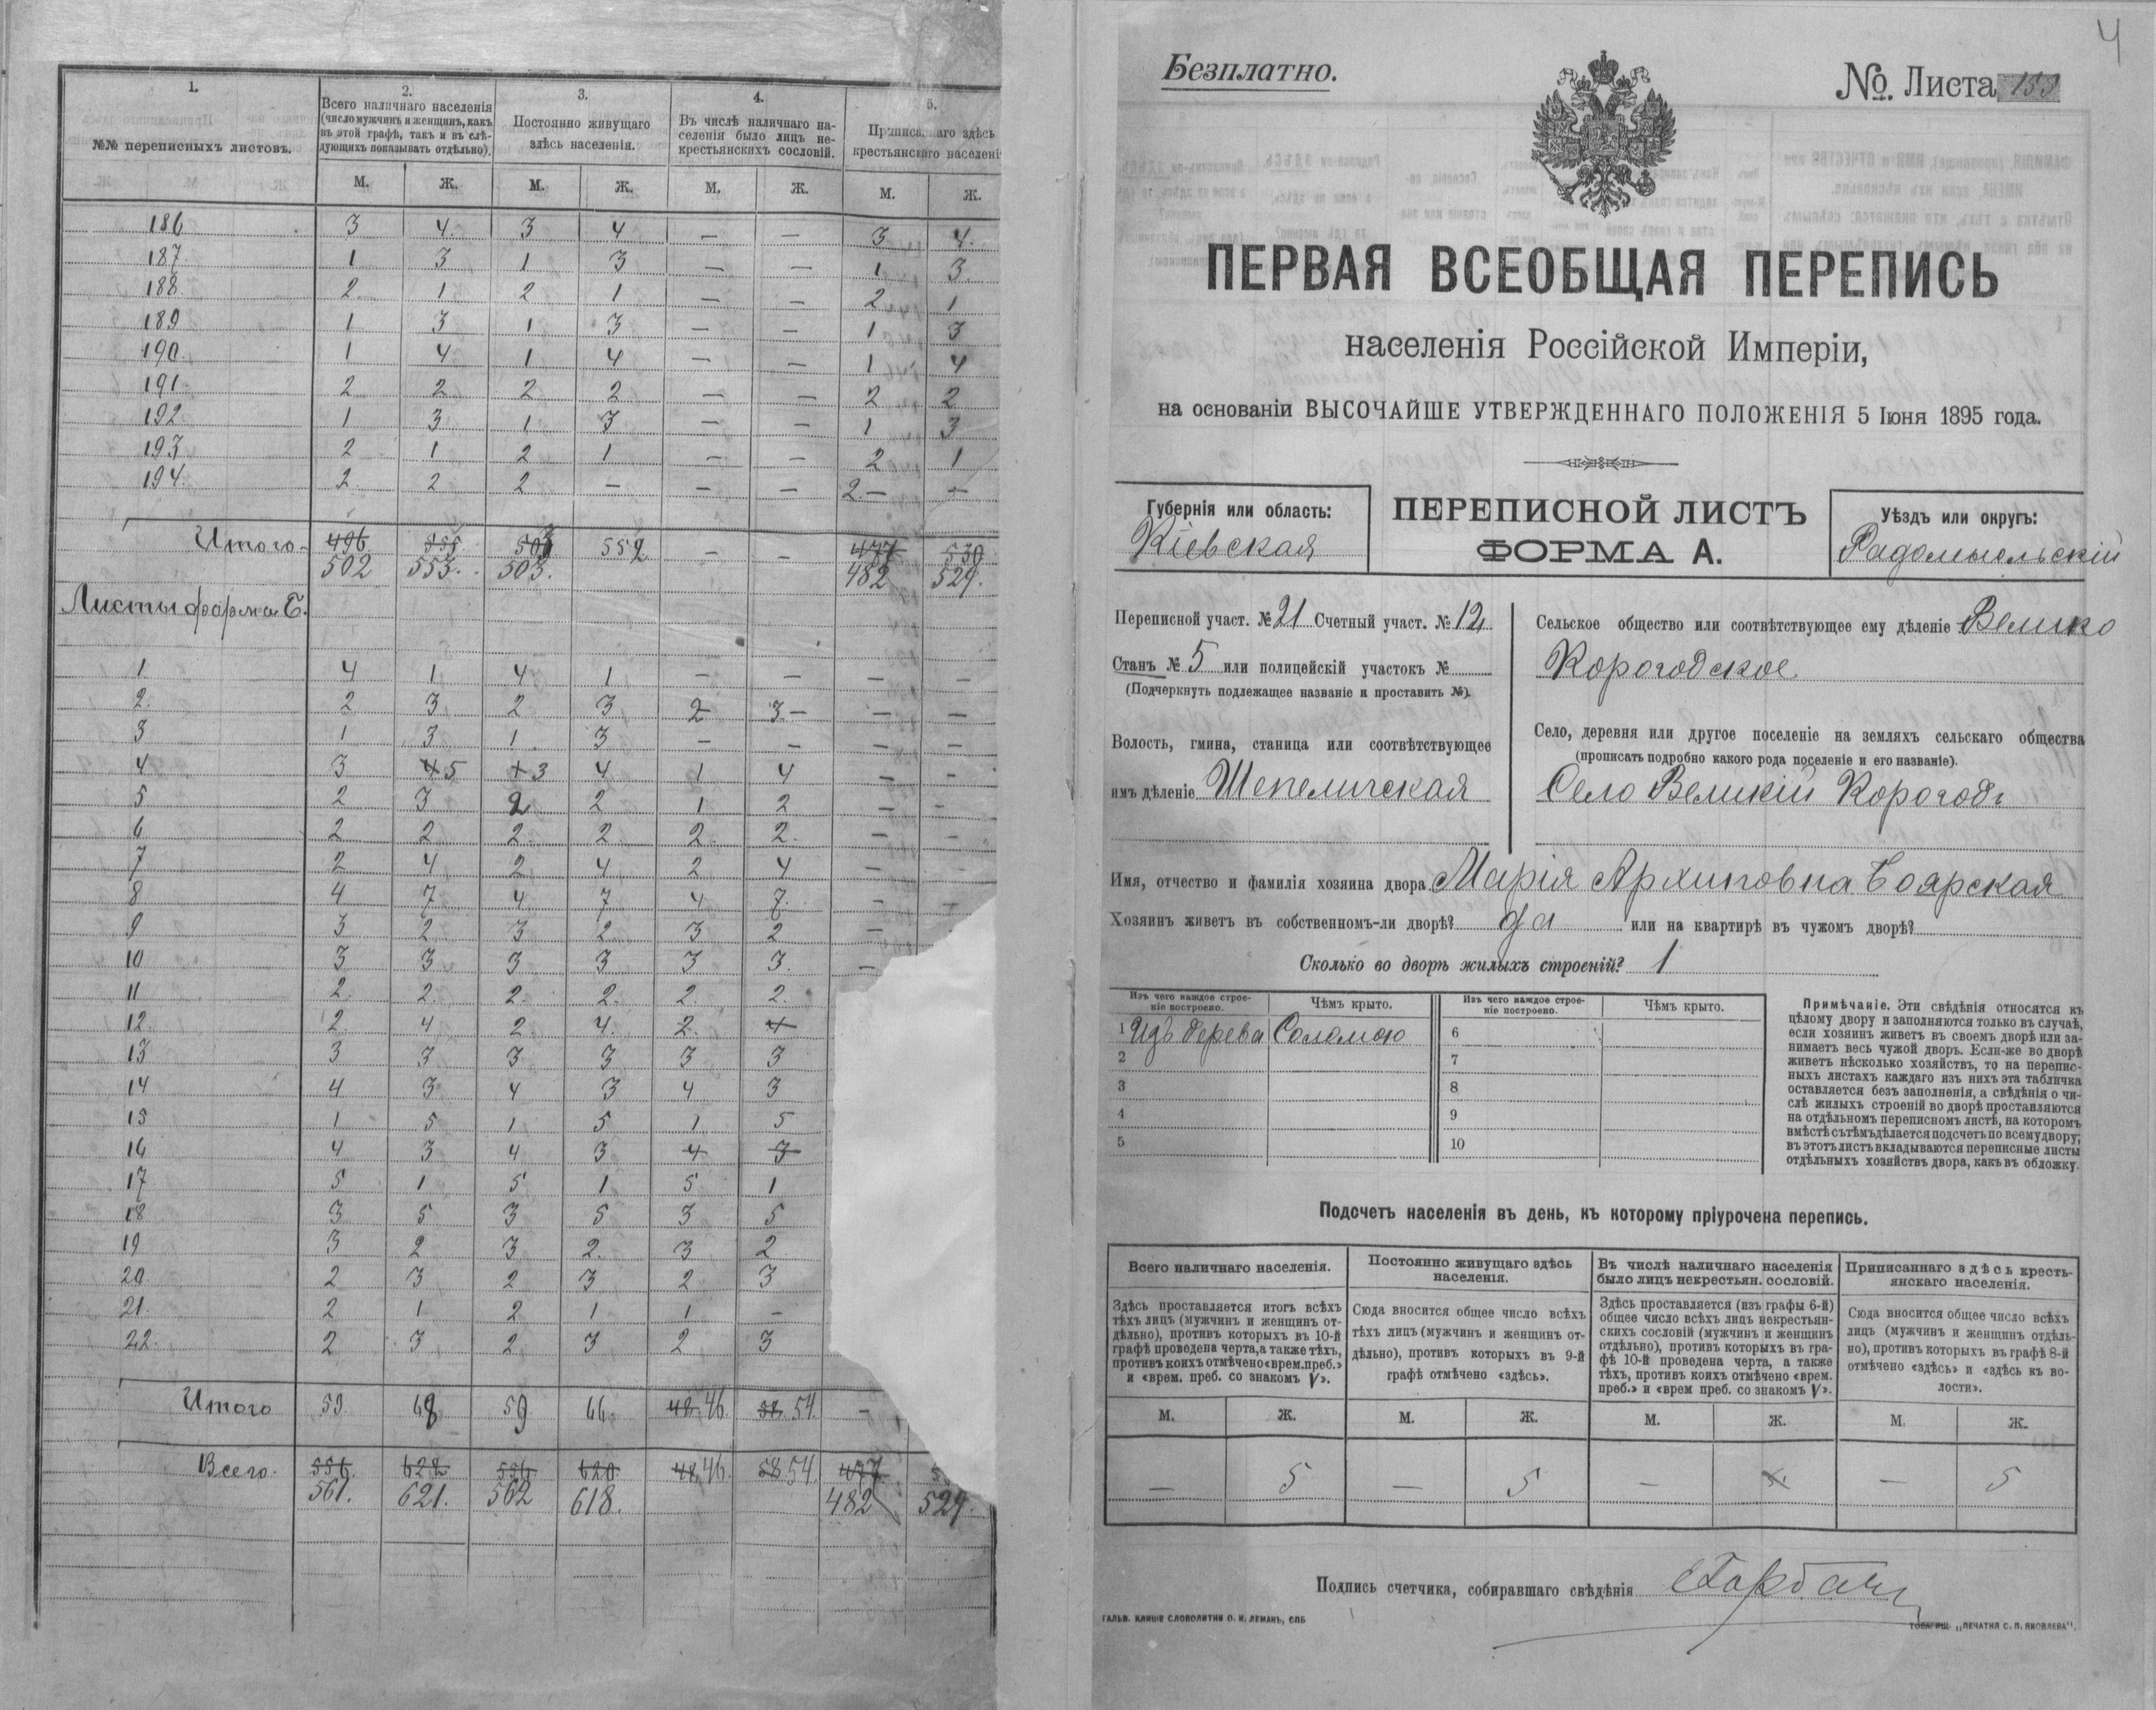 1.
2.
3.
4.
5.
№№ переписныхъ листовъ.
Всего наличнаго населенія
(число мужчинъ и женщинъ, какъ
въ этой графѣ, такъ и въ слѣ-
дующихъ показывать отдѣльно).
Постоянно живущаго
здѣсь населенія.
Въ числѣ наличнаго на-
селенія было лицъ не-
крестьянскихъ сословій.
здѣсь
крестьянскаго населені
М. Ж. М. Ж. М. Ж. М. Ж.
186 3 4 3 4 — — 3 4.
187 1 3 1 3 — — 1 3
188 2 1 2 1 — — 2 1
189 1 3 1 3 — — 1 3
190 1 4 1 4 — — 1 4
191 2 2 2 2 — — 2 2
192 1 3 1 3 — — 1 3
193 2 1 2 1 — — 2 1
194 2 2 2 — — — 2 — —
Итого 496 555 552 — — 477 530
502 553 503. 482 529.
Листы форма Б.
1 4 1 4 1 — — — —
2 2 3 2 3 2 3 — — —
3 1 3 1 3 — — — —
4 3 4 5 4 3 4 1 4 — —
5 2 3 2 2 1 2 — —
6 2 2 2 2 2 2 — —
7 2 4 2 4 2 4 —
8 4 7 4 7 4 7 — —
9 3 2 3 2 3 2 —
10 3 3 3 3 3 3 —
11 2 2 2 2 2 2
12 2 4 2 4 2 4
13 3 3 3 3 3 3
14 4 3 4 3 4 3
15 1 5 1 5 1 5
16 4 3 4 3 4 3
17 5 1 5 1 5 1
18 3 5 3 5 3 5
19 3 2 3 2 3 2
20 2 3 2 3 2 3
21 2 1 2 1 1 —
22 2 3 2 3 2 3
Итого 59 68 59 66 48 46 58 54. —
Всего 556 622 556 620 48 46. 58 54. 477
561. 621. 562 618. 482 529.
4
Безплатно.
№. Листа 159
ПЕРВАЯ ВСЕОБЩАЯ ПЕРЕПИСЬ
населенія Россійской Имперіи,
на основаніи ВЫСОЧАЙШЕ УТВЕРЖДЕННАГО ПОЛОЖЕНІЯ 5 Іюня 1895 года.
Губернія или область:
Кіевская
ПЕРЕПИСНОЙ ЛИСТЪ
ФОРМА А.
Уѣздъ или округъ:
Радомысльскій
Переписной участ. № 21 Счетный участ. № 12
Станъ № 5 или полицейскій участокъ №
(Подчеркнуть подлежащее названіе и проставить №).
Волость, гмина, станица или соотвѣтствующее
имъ дѣленіе Шепеличская
Сельское общество или соотвѣтствующее ему дѣленіе Велико
Корогодское
Село, деревня или другое поселеніе на земляхъ сельскаго общества
(прописать подробно какого рода поселеніе и его названіе).
Село Великій Корогодъ
Имя, отчество и фамилія хозяина двора Марія Архиповна Боярская
Хозяинъ живетъ въ собственномъ-ли дворѣ? да или на квартирѣ въ чужомъ дворѣ?
Сколько во дворѣ жилыхъ строеній? 1
Изъ чего каждое строе-
ніе построено.
Чѣмъ крыто.
Изъ чего каждое строе-
ніе построено.
Чѣмъ крыто.
1 Изъ дерева Соломою 6
2 7
3 8
4 9
5 10
Примѣчаніе. Эти свѣдѣнія относятся къ
цѣлому двору и заполняются только въ случаѣ,
если хозяинъ живетъ въ своемъ дворѣ или за-
нимаетъ весь чужой дворъ. Если-же во дворѣ
живетъ нѣсколько хозяйствъ, то на перепис-
ныхъ листахъ каждаго изъ нихъ эта табличка
оставляется безъ заполненія, а свѣдѣнія о чи-
слѣ жилыхъ строеній во дворѣ проставляются
на отдѣльномъ переписномъ листѣ, на которомъ
вмѣстѣ съ тѣмъ дѣлается подсчетъ по всему двору;
въ этотъ листъ вкладываются переписные листы
отдѣльныхъ хозяйствъ двора, какъ въ обложку.
Подсчетъ населенія въ день, къ которому пріурочена перепись.
Всего наличнаго населенія.
Здѣсь проставляется итогъ всѣхъ
тѣхъ лицъ (мужчинъ и женщинъ от-
дѣльно), противъ которыхъ въ 10-й
графѣ проведена черта, а также тѣхъ,
противъ коихъ отмѣчено «врем. преб.»
и «врем. преб. со знакомъ V».
Постоянно живущаго здѣсь
населенія.
Сюда вносится общее число всѣхъ
тѣхъ лицъ (мужчинъ и женщинъ от-
дѣльно), противъ которыхъ въ 9-й
графѣ отмѣчено «здѣсь».
Въ числѣ наличнаго населенія
было лицъ некрестьян. сословій.
Здѣсь проставляется (изъ графы 6-й)
общее число всѣхъ лицъ некрестьян-
скихъ сословій (мужчинъ и женщинъ
отдѣльно), противъ которыхъ въ гра-
фѣ 10-й проведена черта, а также
тѣхъ, противъ коихъ отмѣчено «врем.
преб.» и «врем преб. со знакомъ V».
Приписаннаго здѣсь кресть-
янскаго населенія.
Сюда вносится общее число всѣхъ
лицъ (мужчинъ и женщинъ отдѣль-
но), противъ которыхъ въ графѣ 8-й
отмѣчено «здѣсь» и «здѣсь къ во-
лости».
М. Ж. М. Ж. М. Ж. М. Ж.
— 5 — 5 — — 5
Подпись счетчика, собиравшаго свѣдѣнія
ГАЛЬВ. КЛИШЕ СЛОВОЛИТНИ О. И. ЛЕМАНЪ, СПБ
ТОВАРИЩ. „ПЕЧАТНЯ С. П. ЯКОВЛЕВА".